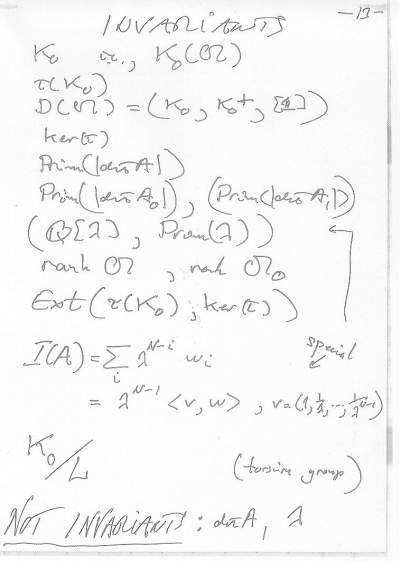 —13—
INVARIANTS
K₀ i.e., K₀(𝔄)
τ(K₀)
D(𝔄) = (K₀, K₀⁺, [1])
ker(τ)
Prim(|det A|)
Prim(|det A₀|), (Prim(|det A₁|))
(Q[λ], Prim(λ))
rank 𝔄, rank 𝔄₀
Ext(τ(K₀); ker(τ))
I(A) = ∑ᵢ λᴺ⁻ⁱ wᵢ special
= λᴺ⁻¹ <v, w>, v = (1, 1/λ, ..., 1/λᴺ⁻¹)
K₀/L (torsion groups)
NOT INVARIANTS: det A, λ